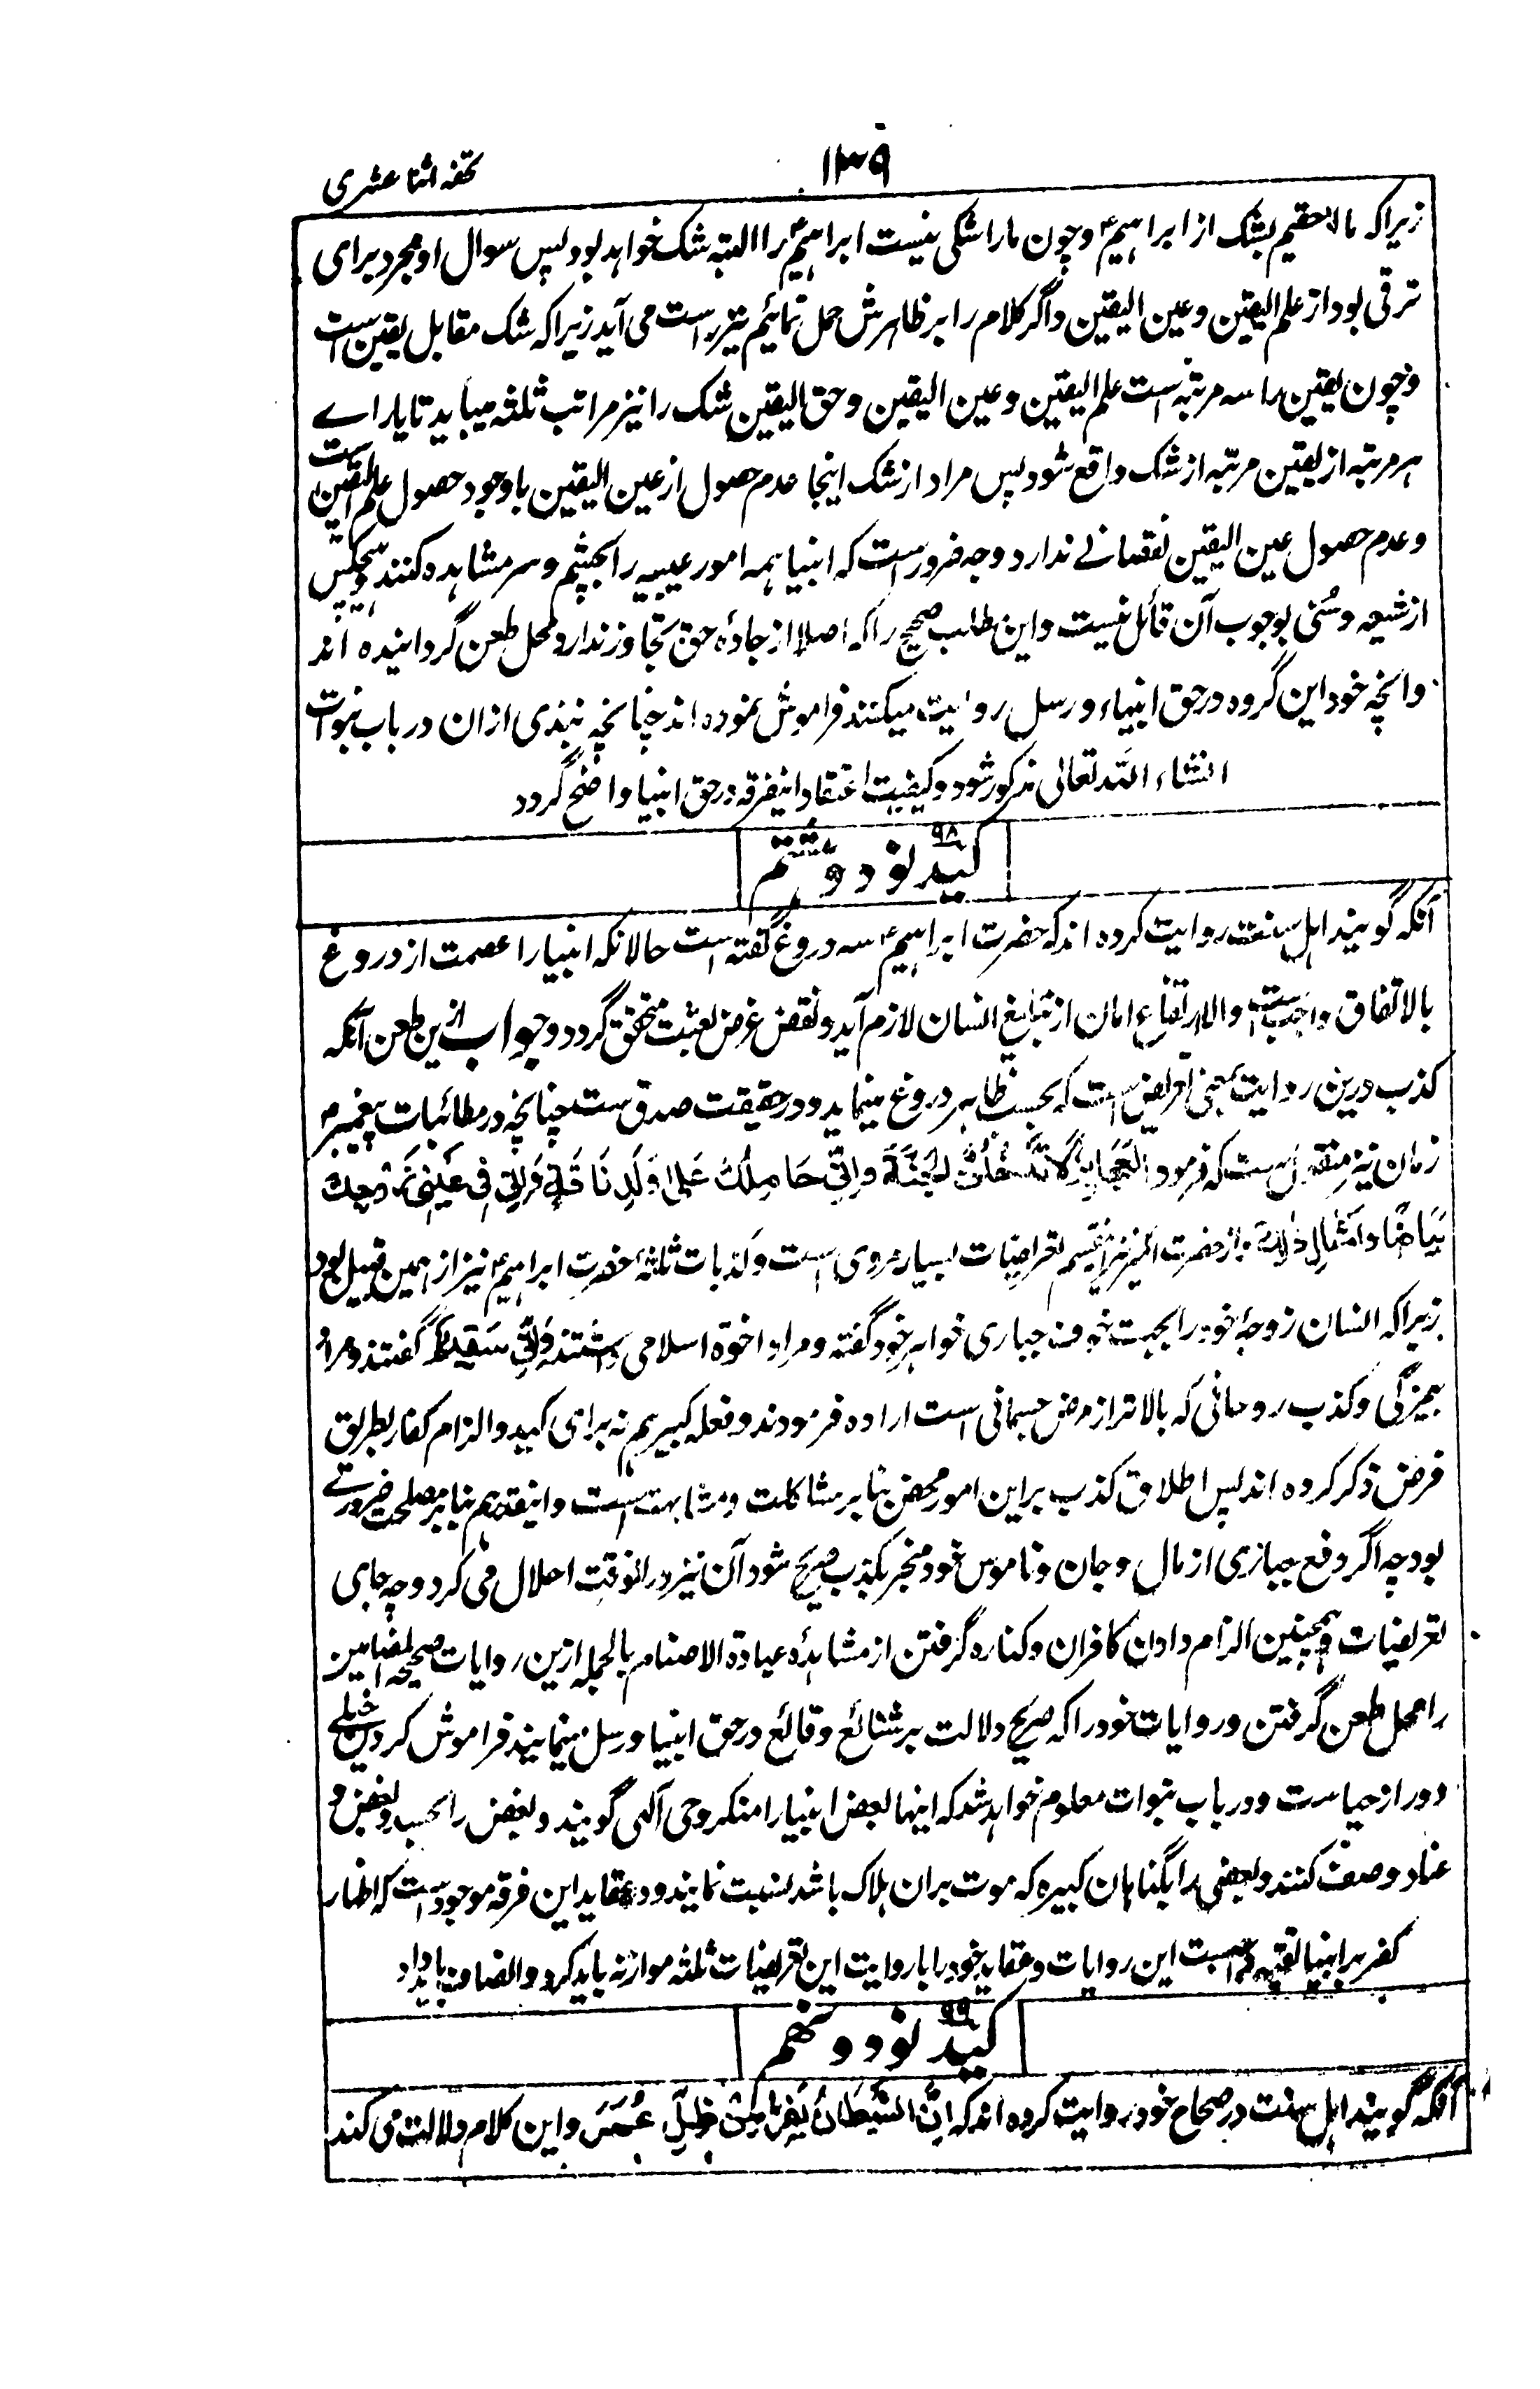 ۱۳۹
تحفه اثنا عشری
زیراکه ما لاحقیم بشک از ابراهیمؑ و چون ما را شکی نیست ابراهیمؑ را البته شک نخواهد بود پس سوال او مجرد برای
ترقی بود از علم الیقین و عین الیقین و اگر کلام را بر ظاهرش حمل نمائیم نیز راست می آید زیراکه شک مقابل یقین است
و چون یقین را سه مرتبه است علم الیقین و عین الیقین و حق الیقین شک را نیز مراتب ثلثه میباید تا یارا اے
هر مرتبه از یقین مرتبه از شک واقع شود پس مراد از شک اینجا عدم حصول از عین الیقین با وجود حصول علم الیقین است
و عدم حصول عین الیقین نقصانے ندارد و چه ضرور است که انبیا همه امور غیبیه را بچشم و سر مشاهده کنند و هیچکس
از شیعه و سُنی بوجوب آن قائل نیست و این طالب صحیح را که اصلا از جادهٔ حق تجاوز ندارد محل طعن گردانیده اند
و انچه خود این گروه در حق انبیاء و رسل روایت میکنند فراموش نموده اند چنانچه نبذی ازان در باب نبوات
انشاء الله تعالی مذکور شود و کیفیت اعتقاد اینفرقه در حق انبیا واضح گردد
کید نود و هشتم ۹۸
آنکه گویند اهل سنت روایت کرده اند که حضرت ابراهیمؑ سه دروغ گفته است حالانکه انبیا را عصمت از دروغ
بالاتفاق واجب است والا ارتفاع امان از تبلیغ انسان لازم آید و نقض غرض بعثت متحقق گردد و جواب ازین طعن آنکه
کذب درین روایت بمعنی تعریض است که بحسب ظاهر دروغ مینماید و در حقیقت صدق ست چنانچه در مطائبات پیغمبر
زمان نیز منقول است که فرمود العَجَائِزُ لَا تَدْخُلْنَ الجَنَّةَ وَاِنِّی حَامِلُكَ عَلٰی وَلَدِ نَاقَةٍ وَ فِی عَیْنَیْ زَوْجِكِ
بَیَاضًا وَاَمْثَالِ ذٰلِكَ و از حضرت امیر نیز این قسم تعریضات بسیار مروی است و کذبات ثلثهٔ حضرت ابراهیمؑ نیز از همین قبیل بود
زیراکه انسان زوجهٔ خود را بجهت خوف جباری خواهر خود گفته و مراد اخوة اسلامی داشتند وَاِنِّی سَقِیمٌ گفتند و مراد
بیمزگی و کذب روحانی که بالاتر از مرض جسمانی است اراده فرمودند و فعله کبیرهم نه برای کید و الزام کفار بطریق
فرض ذکر کرده اند پس اطلاق کذب بر این امور محض بنا بر مشاکلت و مشابهت است و اینقدر هم بنابر مصلحت ضرورتے
بود چه اگر دفع جبازی از مال و جان و ناموس خود منجر بکذب صریح شود آن نیز در انوقت احلال می گردد چه جای
تعریضات و همچنین الزام دادن کافران و کناره گرفتن از مشاهدهٔ عبادة الاصنام بالجمله ازین روایات صحیحة المضامین
را محل طعن گرفتن و روایات خود را که صریح دلالت بر شنائع وقائع در حق انبیا و رسل مینمایند فراموش کردن خیلے
دور از حیاست و در باب نبوات معلوم خواهد شد که اینها بعض انبیا را منکر وحی آلهی گویند و بعض را بحسد و بغض و
عناد وصف کنند و بعضی را بگناهان کبیره که موت بران هلاک باشد نسبت نمایند و در عقاید این فرقه موجود است که اظهار
کفر بر انبیا تقیه واجب است این روایات و عقاید خود را با روایت این تعریضات ثلثه موازنه باید کرد و انصاف باید داد
کید نود و نهم ۹۹
آنکه گویند اهل سنت در صحاح خود روایت کرده اند که اِنَّ الشَّیْطَانَ یَفِرُّ مِنْ ظِلِّ عُمَرَ و این کلام دلالت می کند